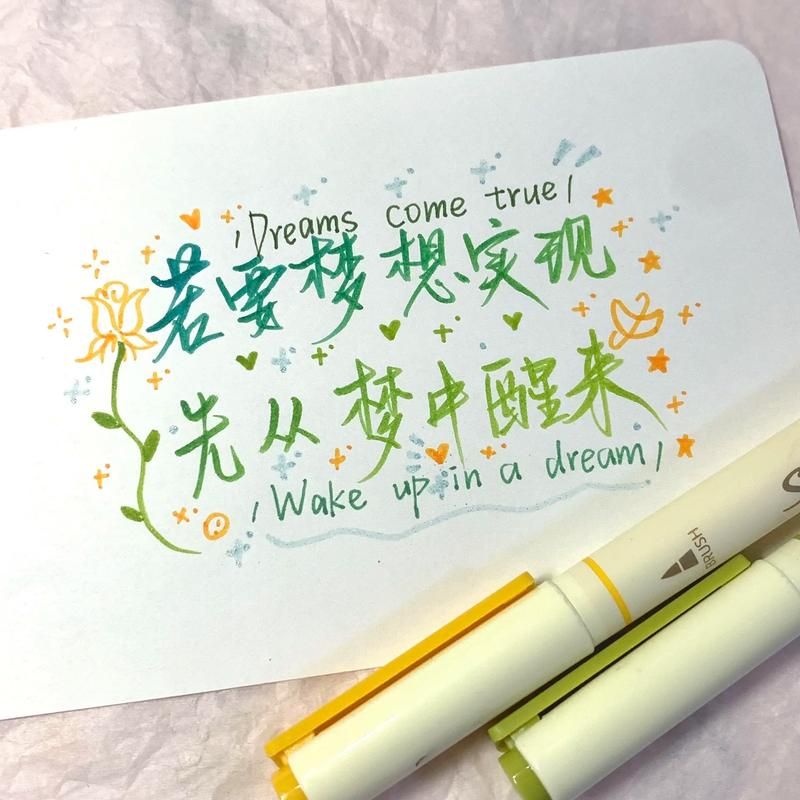 Dreams come true
若要梦想实现
先从梦中醒来
Wake up in a dream
BRUSH